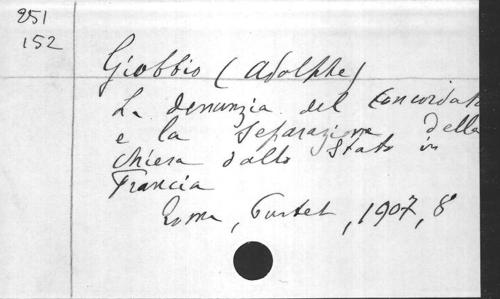 851
152
Giobbio (Adolphe)
La denunzia del Concordato
e la Separazione della
Chiesa dallo Stato in
Francia
Roma, Pustet, 1907, 8°